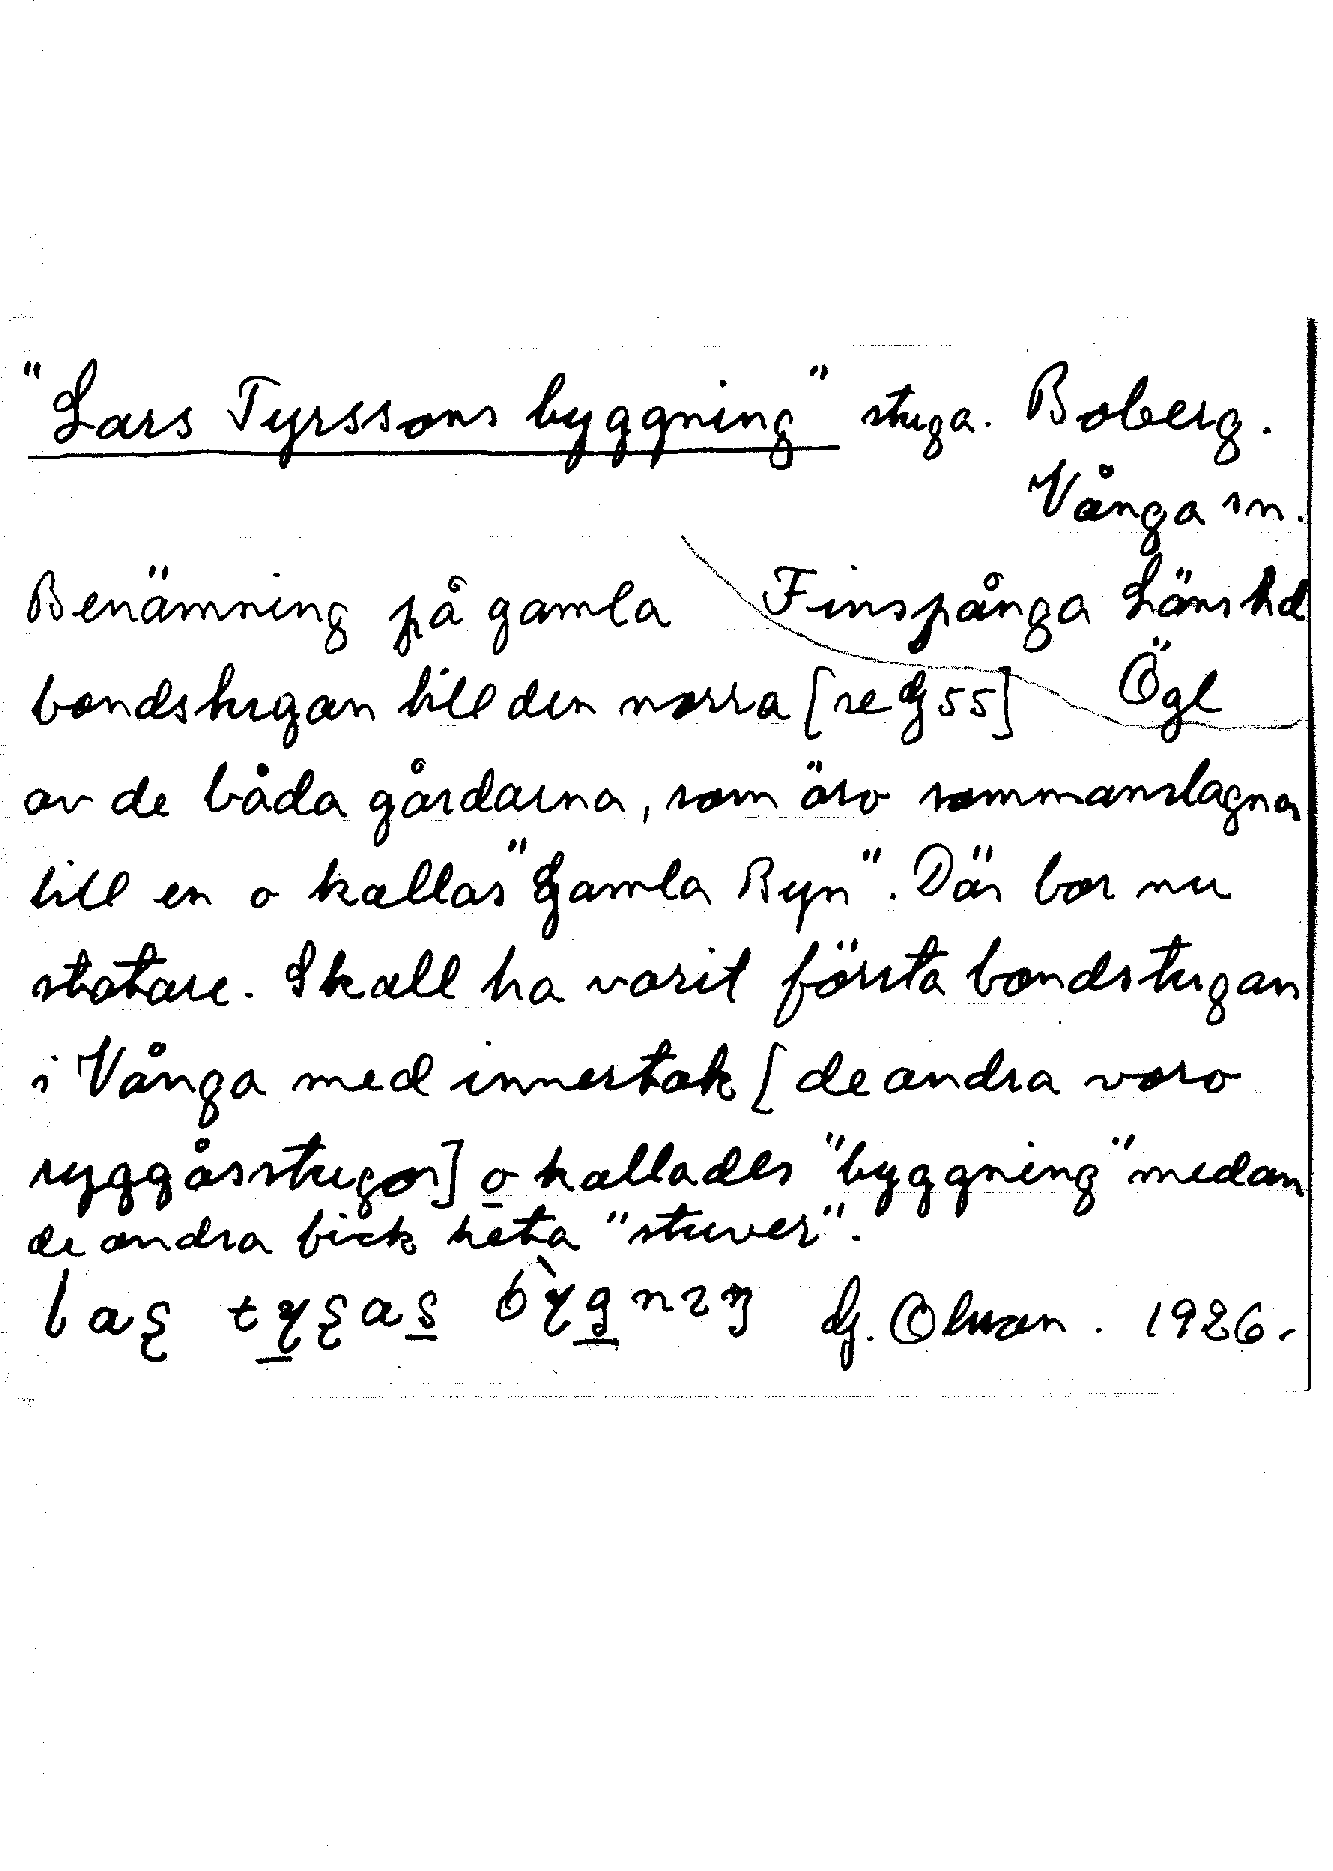 "Lars Tyrssons byggning" stuga. Boberg.
Vånga sn.
Benämning på gamla Finspånga Länshd
bondstugan till den norra [se G 55] Ögl
av de båda gårdarna, som äro sammanslagna
till en o kallas "Gamla Byn". Där bor nu
statare. Skall ha varit första bondstugan
i Vånga med innertak [de andra voro
ryggåsstugor] o kallades "byggning" medan
de andra fick heta "stuver".
G. Olsson. 1926.